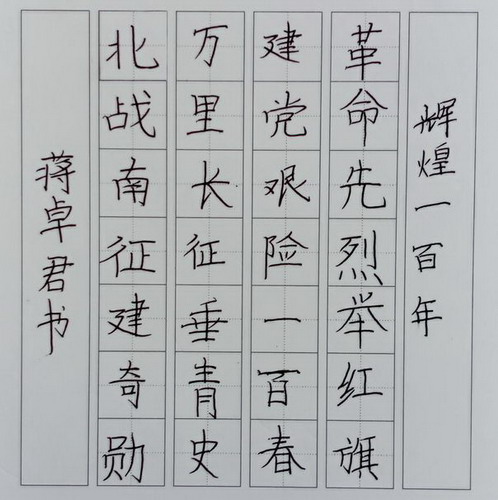 辉煌一百年
革命先烈举红旗
建党艰险一百春
万里长征垂青史
北战南征建奇勋
蒋卓君书